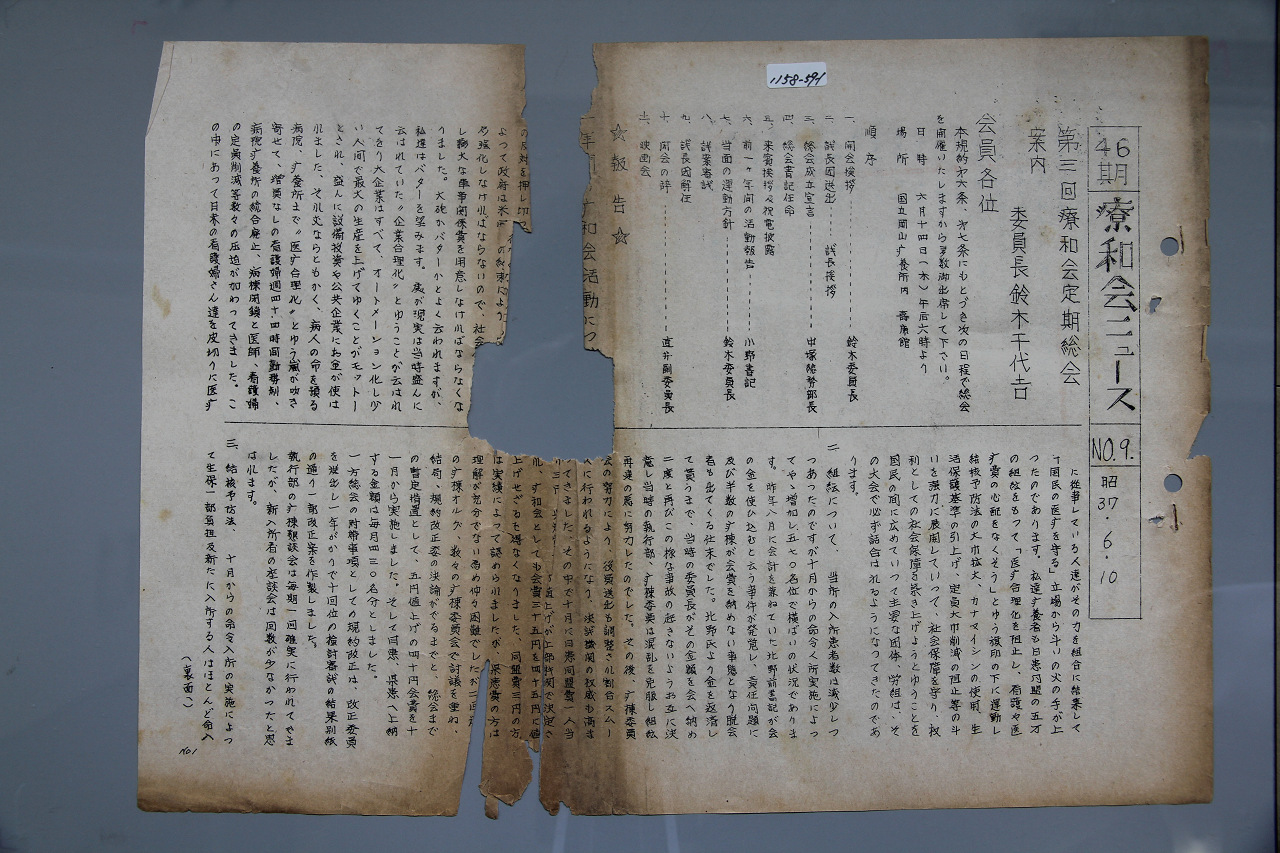 1158-591
46期
療和会ニュース
NO.9.
昭37.6.10
第三回療和会定期総会
案内
委員長鈴木千代吉
会員各位
本規約第六条、第七条にもとづき次の日程で総会
を開催いたしますから多数御出席して下さい。
日時 六月十四日(木)午后六時より
場所 国立岡山疗養所内
順序
一、開会挨拶 鈴木委員長
二、議長団送出 議長挨拶
三、総会成立宣言 中塚総務部長
四、総会書記任命
五、来賓挨拶及祝電披露
六、前一ヶ年間の活動報告 小野書記
七、当面の運動方針 鈴木委員長
八、議案審議
九、議長団解任
十、閉会の辞 直井副委員長
土、映画会
☆報告☆
和会活動につ
の反対を押し切つ
よつて政府は米
を強化しなければならないので、社会
し厖大な軍事関係費を用意しなければならなくな
りました。大砲かバターかとよく云われますが、
私達はバターを望みます。処が現実は当時盛んに
云はれていた〃企業合理化〃とゆうことが云はれ
てをり大企業はすべて、オートメーション化し少
い人間で最大の生産を上げてゆくことがモットー
とされ、盛んに設備投資や公共企業にお金が使は
れました。それ丈ならともかく、病人の命を預る
病院、疗養所まで〃医疗合理化〃とゆう嵐が吹き
寄せて、増員なしの看護婦週四十四時間勤務制、
病院疗養所の統合廃止、病棟閉鎖と医師、看護婦
の定員削減等数々の圧迫が加わってきました。こ
の中にあって日本の看護婦さん達を皮切りに医疗
に従事している人達がその力を組合に結集して
「国民の医疗を守る」立場から斗いの火の手が上
つたのであります。私達疗養者も日患同盟の五万
の組織をもつて「医疗合理化を阻止し、看護や医
疗費の心配をなくそう」とゆう旗印の下に運動し
結核予防法の大巾拡大、カナマイシンの使用、生
活保護基準の引上げ、定員大巾削減の阻止等の斗
いを強力に展開していつて、社会保障を守り、权
利としての社会保障を築き上げようとゆうことを
国民の間に広めていって主要な団体、労組は、そ
の大会で必ず話合はれるようになつてきたのであ
ります。
二、組織について、 当所の入所患者数は減少しつ
つあったのですが十月からの命令入所実施によつ
てやゝ増加し五七〇名位で横ばいの状況でありま
す。昨年八月に会計を兼ねていた北野前書記が会
の金を使ひ込むと云う事件が発覚し、責任問題に
及び半数の疗棟が会費を納めない事態となり脱会
者も出てくる仕末でした。北野氏より金を返済し
て貰うまで、当時の委員長がその金額を会へ納め
二度と再びこの様な事故の起きないようお互に決
意し当時の執行部、疗棟委員は混乱を克服し組織
再建の為に努力したのでした。その後、疗棟委員
会の努力により、役員送出も調整され割合スムー
に行われるようになり、決議機関の权威も高ま
てきました。その中で十月に日患同盟費一人当
値上げが上部機関で決定さ
れ、疗和会としても会費三十五円を四十五円に値
上げせざるを得なくなりました。同盟費三円の方
は実績によって認められましたが、県患費の方は
理解が充分でない為め仲々困難でしたが二回
の疗棟オルグ、数々の疗棟委員会で討議を重ね、
結局、規約改正委の決論がでるまでと、総会まで
の暫定措置として、五円値上げの四十円会費を十
一月から実施しました。そして同患、県患へ上納
する金額は毎月四三〇名分としました。
一方総会の附帯事項としての規約改正は、改正委員
を送出し一年がかりで十回位の検討審議の結果別紙
の通り一部改正案を作製しました。
執行部の疗棟懇談会は毎期一回確実に行われてきま
したが、新入所者の座談会は回数が少なかったと思
はれます。
三、結核予防法、 十月からの命令入所の実施によつ
て生保一部負担及新たに入所する人はほとんど命入
(裏面へ)
NO1